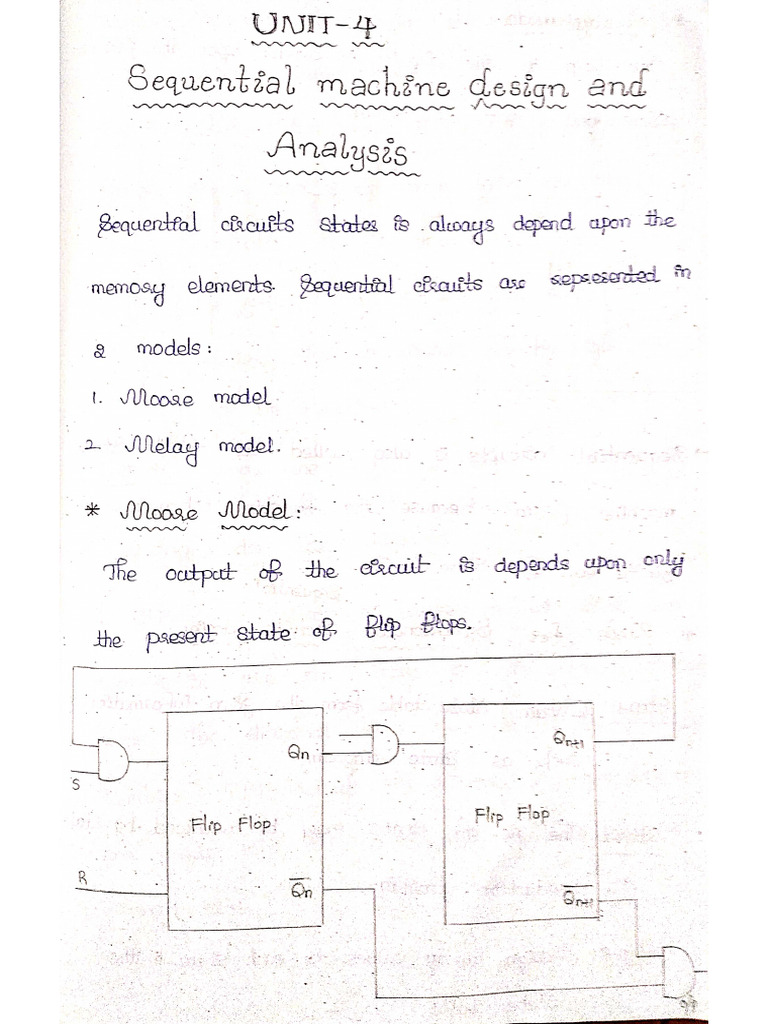 UNIT-4
Sequential machine design and
Analysis
Sequential circuits states is always depend upon the
memory elements. Sequential circuits are represented in
2 models:
1. Moore model
2 Melay model.
* Moore Model:
The output of the circuit is depends upon only
the present state of flip flops.
Qn
Qn+1
S
Flip Flop
Flip Flop
R
Q̅n
Q̅n+1
O/P